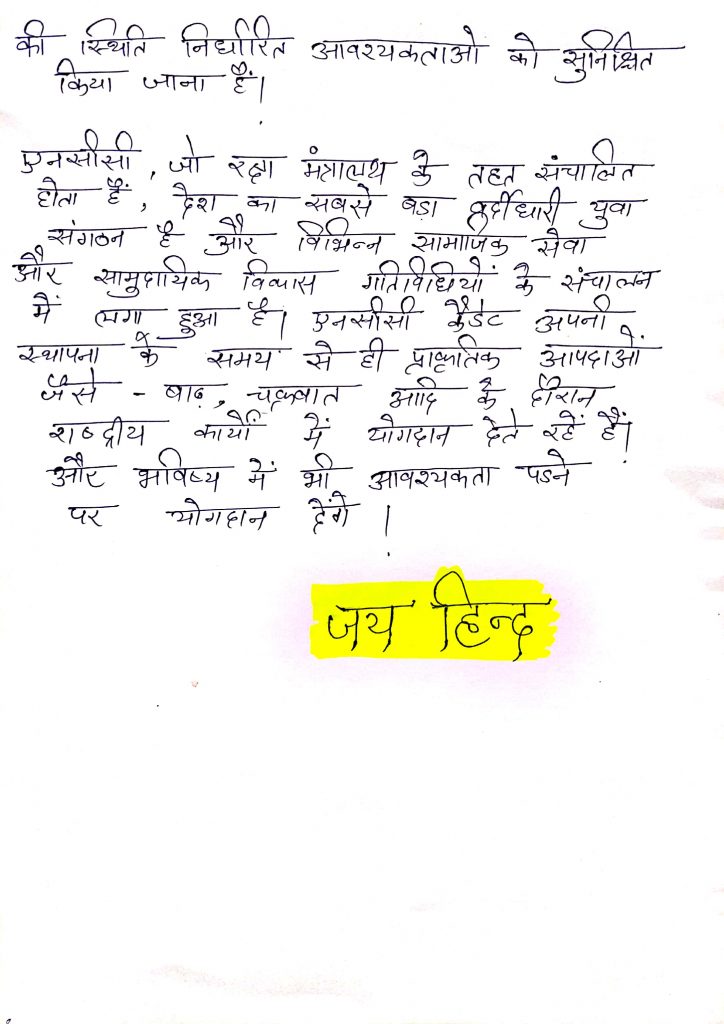 की स्थिति निर्धारित आवश्यकताओ को सुनिश्चित
किया जाना है।
एनसीसी, जो रक्षा मंत्रालय के तहत संचालित
होता है, देश का सबसे बड़ा वर्दीधारी युवा
संगठन है और विभिन्न सामाजिक सेवा
और सामुदायिक विकास गतिविधियों के संचालन
में लगा हुआ है। एनसीसी कैडेट अपनी
स्थापना के समय से ही प्राकृतिक आपदाओं
जैसे - बाढ़, चक्रवात आदि के दौरान
राष्ट्रीय कार्यों में योगदान देते रहें हैं।
और भविष्य में भी आवश्यकता पडने
पर योगदान देंगे।
जय हिन्द